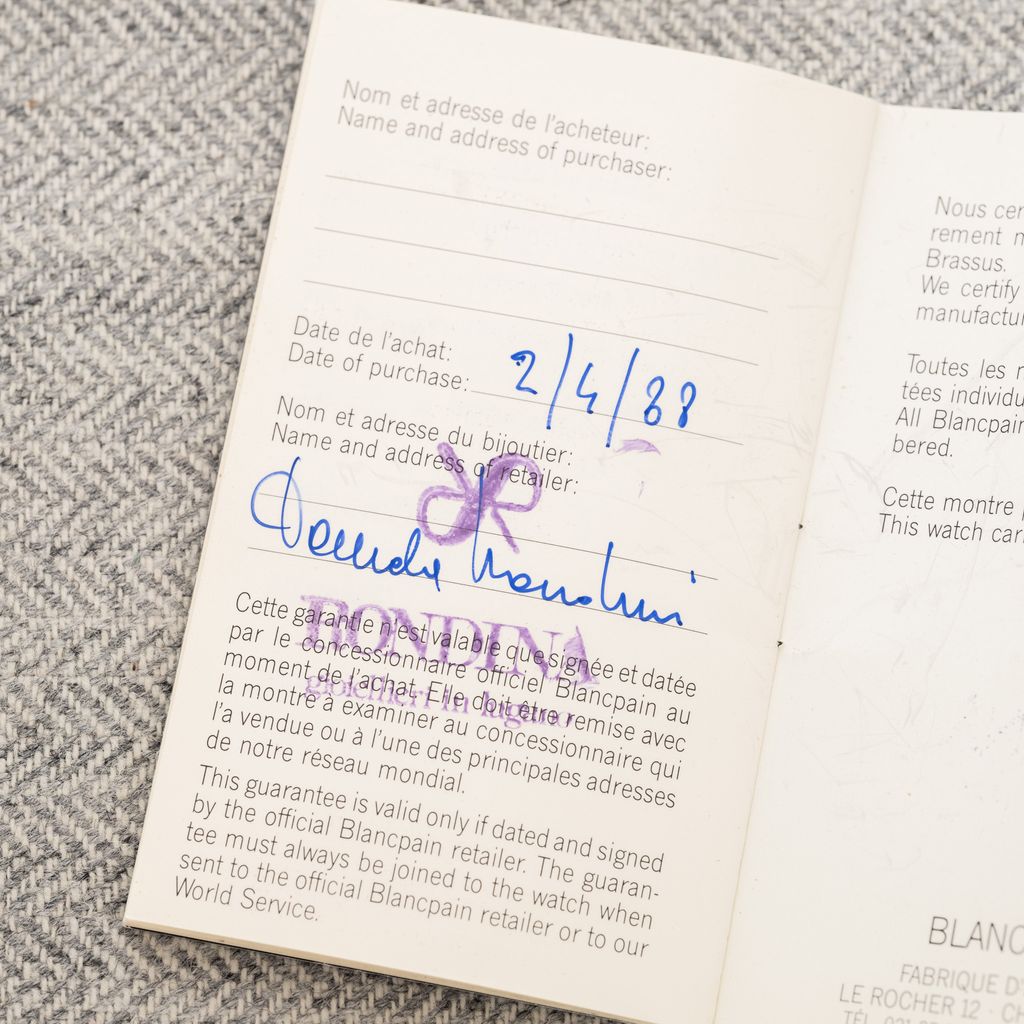 Nom et adresse de l'acheteur:
Name and address of purchaser:
Date de l'achat:
Date of purchase: 2/4/88
Nom et adresse du bijoutier:
Name and address of retailer:
BONDINA
gioiellieri in lugano
Cette garantie n'est valable que signée et datée
par le concessionnaire officiel Blancpain au
moment de l'achat. Elle doit être remise avec
la montre à examiner au concessionnaire qui
l'a vendue ou à l'une des principales adresses
de notre réseau mondial.
This guarantee is valid only if dated and signed
by the official Blancpain retailer. The guaran-
tee must always be joined to the watch when
sent to the official Blancpain retailer or to our
World Service.
Nous cer
rement m
Brassus.
We certify
manufactu
Toutes les
tées individu
All Blancpain
bered.
Cette montre
This watch car
BLANC
FABRIQUE D'
LE ROCHER 12 · CH
TÉL. 021